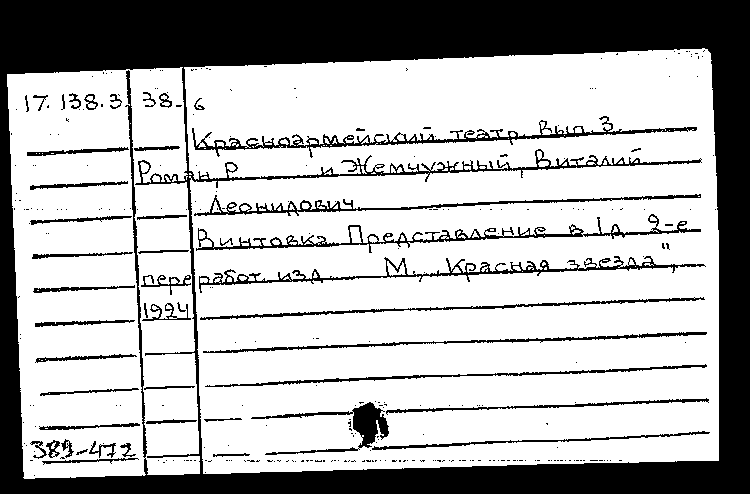 17.138.3 38-6
Красноармейский театр. Вып. 3.
Роман, Р и Жемчужный, Виталий
Леонидович.
Винтовка. Представление в 1 д. 2-е
перераbот. изд. М., "Красная звезда",
1924
389-472